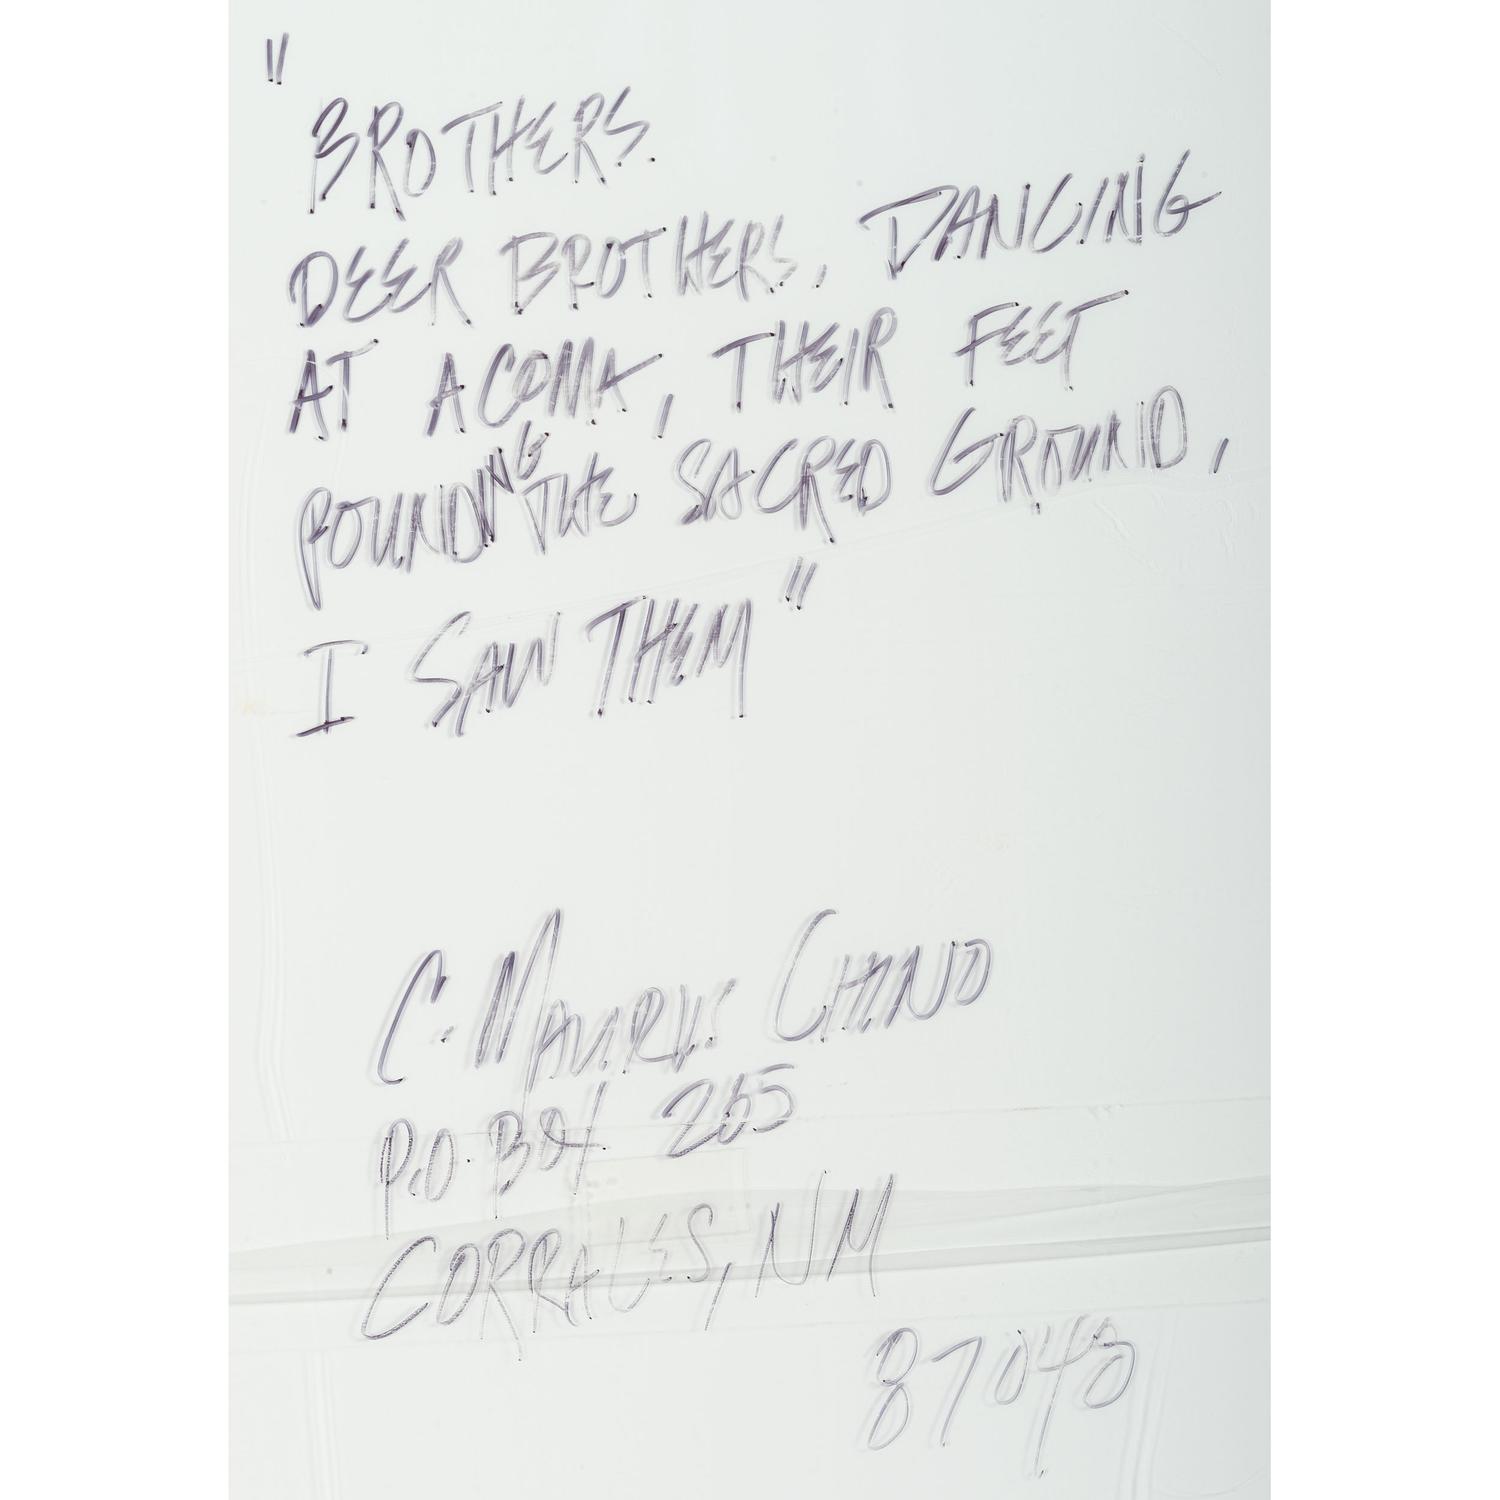 "
BROTHERS.
DEER BROTHERS, DANCING
AT ACOMA, THEIR FEET
POUNDING THE SACRED GROUND,
I SAW THEM"
C. MAURUS CHINO
P.O. BOX 265
CORRALES, NM
87048